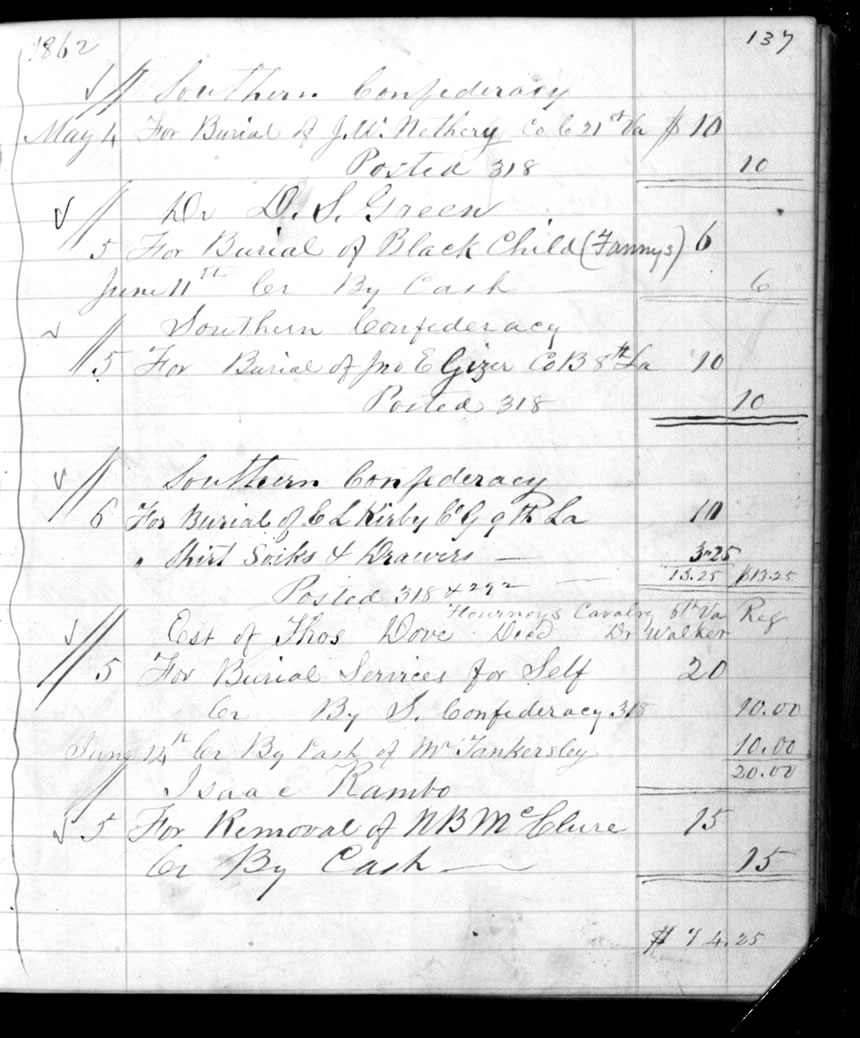 1862 137
Southern Confederacy
May 4 For Burial of J.W. Nethery Co C 21st Va $ 10
Posted 318 10
Dr D. S. Green
5 For Burial of Black Child (Fannys) 6
June 11th Cr By Cash 6
Southern Confederacy
5 For Burial of Jno E Gizer Co B 8th La 10
Posted 318 10
Southern Confederacy
6 For Burial of C L Kirby Co G 9th La 10
" Shirt Socks & Drawers 3.25
13.25 $13.25
Posted 318 & 292
Flournoys Cavalry 6th Va Reg
Est of Thos Dove Died Dr Walker
5 For Burial Services for Self 20
Cr By S. Confederacy 318 10.00
June 14th Cr By Cash of Mr Tankersley 10.00
20.00
Isaac Rambo
5 For Removal of N B McClure 15
Cr By Cash 15
$ 74.25